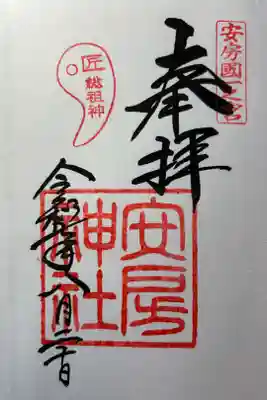 安房國一之宮
奉拝
安房
神社
匠
総祖神
令和元年八月二日